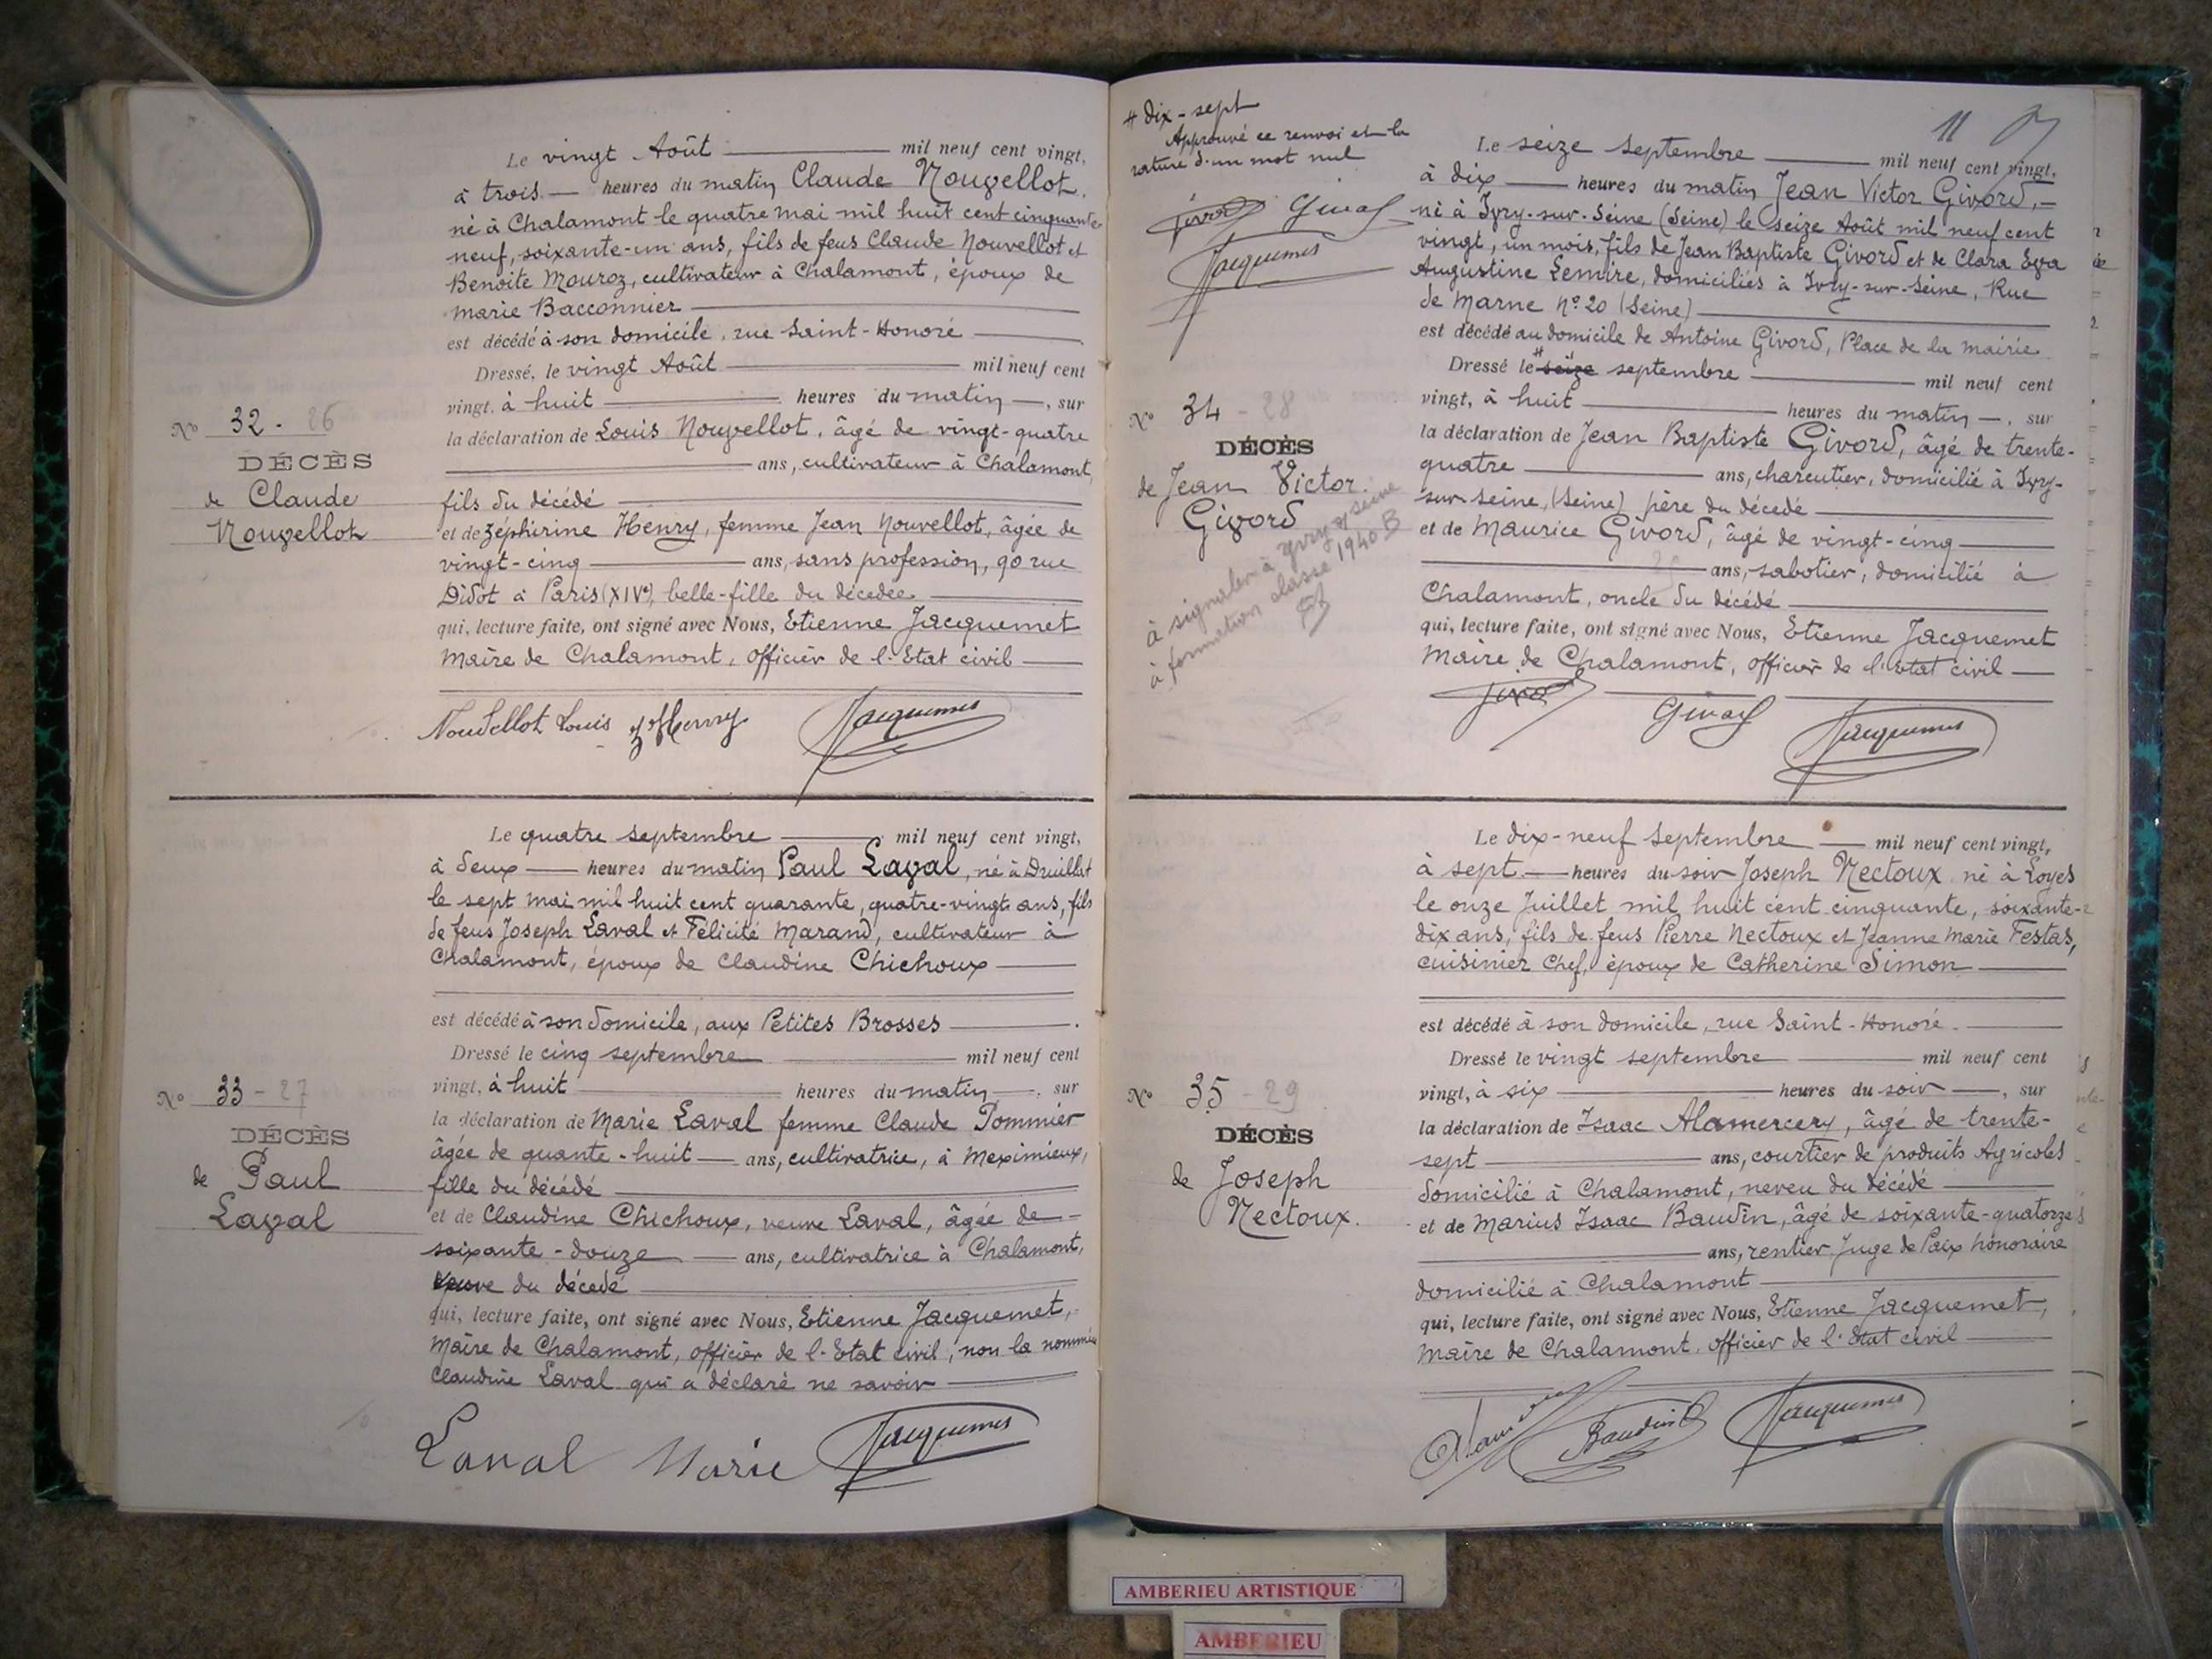 Le vingt Août mil neuf cent vingt,
à trois heures du matin Claude Nouvellot,
né à Chalamont le quatre mai mil huit cent cinquante
neuf, soixante-un ans, fils de feus Claude Nouvellot et
Benoite Mouroz, cultivateur à Chalamont, époux de
marie Bacconnier
est décédé à son domicile, rue Saint-Honoré
Dressé, le vingt Août mil neuf cent
vingt, à huit heures du matin, sur
la déclaration de Louis Nouvellot, âgé de vingt-quatre
ans, cultivateur à Chalamont,
fils du décédé
et de Zéphirine Henry, femme Jean Nouvellot, âgée de
vingt-cinq ans, sans profession, 90 rue
Didot à Paris (XIVe), belle-fille du décedée
qui, lecture faite, ont signé avec Nous, Etienne Jacquemet
Maire de Chalamont, officier de l'Etat civil
Nouvellot Louis Z Henry Jacquemet
No 32 - 26
DÉCÈS
de Claude
Nouvellot
Le quatre septembre mil neuf cent vingt,
à deux heures du matin Paul Laval, né à Druillat
le sept mai mil huit cent quarante, quatre-vingts ans, fils
de feus Joseph Laval et Félicité Marand, cultivateur à
Chalamont, époux de Claudine Chichoux
est décédé à son domicile, aux Petites Brosses
Dressé le cinq septembre mil neuf cent
vingt, à huit heures du matin, sur
la déclaration de Marie Laval femme Claude Pommier
âgée de quante-huit ans, cultivatrice, à Meximieux,
fille du décédé
et de Claudine Chichoux, veuve Laval, âgée de
soixante-douze ans, cultivatrice à Chalamont,
veuve du décedé
qui, lecture faite, ont signé avec Nous, Etienne Jacquemet,
Maire de Chalamont, officier de l'Etat civil, non la nommée
Claudine Laval qui a déclaré ne savoir
Laval Marie Jacquemet
No 33 - 27
DÉCÈS
de Paul
Laval
# Dix-sept
Approuvé ce renvoi et la
rature d'un mot nul
Givord Givord
Jacquemet
11
Le seize septembre mil neuf cent vingt,
à dix heures du matin Jean Victor Givord,
né à Ivry-sur-Seine (Seine) le seize Août mil neuf cent
vingt, un mois, fils de Jean Baptiste Givord et de Clara Eva
Augustine Lemire, domiciliés à Ivry-sur-Seine, Rue
de Marne No 20 (Seine)
est décédé au domicile de Antoine Givord, Place de la mairie
Dressé le # seize septembre mil neuf cent
vingt, à huit heures du matin, sur
la déclaration de Jean Baptiste Givord, âgé de trente-
quatre ans, charcutier, domicilié à Ivry-
sur-Seine, (Seine) père du décedé
et de Maurice Givord, âgé de vingt-cinq
ans, sabotier, domicilié à
Chalamont, oncle du décédé
qui, lecture faite, ont signé avec Nous, Etienne Jacquemet
Maire de Chalamont, officier de l'Etat civil
Givord Givord Jacquemet
No 34 - 28
DÉCÈS
de Jean Victor
Givord
à signaler à Ivry s/ Seine
à formation classe 1940 B
Le dix-neuf Septembre mil neuf cent vingt,
à sept heures du soir Joseph Nectoux né à Loyes
le onze Juillet mil huit cent cinquante, soixante-
dix ans, fils de feus Pierre Nectoux et Jeanne Marie Festas,
cuisinier Chef, époux de Catherine Simon
est décédé à son domicile, rue Saint-Honoré.
Dressé le vingt septembre mil neuf cent
vingt, à six heures du soir, sur
la déclaration de Isaac Alamercery, âgé de trente-
sept ans, courtier de produits Agricoles
domicilié à Chalamont, neveu du décédé
et de Marius Isaac Baudin, âgé de soixante-quatorze
ans, rentier Juge de Paix honoraire
domicilié à Chalamont
qui, lecture faite, ont signé avec Nous, Etienne Jacquemet,
Maire de Chalamont, officier de l'Etat civil
Baudin Jacquemet
No 35 - 29
DÉCÈS
de Joseph
Nectoux.
AMBERIEU ARTISTIQUE
AMBERIEU